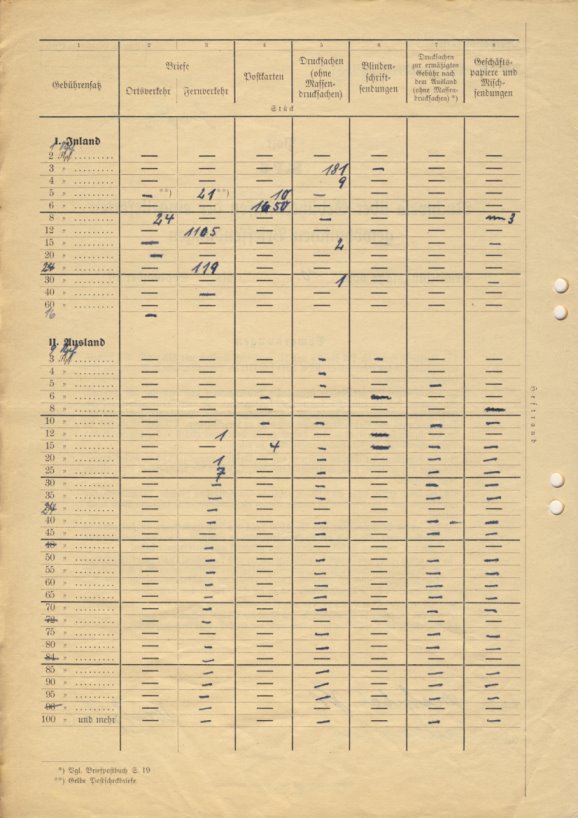 1 2 3 4 5 6 7 8
Gebührensatz
Briefe
Ortsverkehr Fernverkehr
Postkarten
Drucksachen
(ohne
Massen-
drucksachen)
Blinden-
schrift-
sendungen
Drucksachen
zur ermäßigten
Gebühr nach
dem Ausland
(ohne Massen-
drucksachen) *)
Geschäfts-
papiere und
Misch-
sendungen
Stück
I. Inland
2 Rpf ......... — — — — — — —
3 " ......... — — — 181 — — —
4 " ......... — — — 9 — — —
5 " ......... — **) 21 **) 10 — — — —
6 " ......... — — 1650 — — — —
8 " ......... 24 — — — — — 3
12 " ......... — 1105 — — — — —
15 " ......... — — — 2 — — —
20 " ......... — — — — — — —
24 " ......... — 119 — — — — —
30 " ......... — — — 1 — — —
40 " ......... — — — — — — —
60 " ......... — — — — — — —
16 —
II. Ausland
3 Rpf ......... — — — — — — —
4 " ......... — — — — — — —
5 " ......... — — — — — — —
6 " ......... — — — — — — —
8 " ......... — — — — — — —
10 " ......... — — — — — — —
12 " ......... — 1 — — — — —
15 " ......... — — 4 — — — —
20 " ......... — 1 — — — — —
25 " ......... — 7 — — — — —
30 " ......... — — — — — — —
35 " ......... — — — — — — —
" ......... — — — — — — —
40 " ......... — — — — — — —
45 " ......... — — — — — — —
48 " ......... — — — — — — —
50 " ......... — — — — — — —
55 " ......... — — — — — — —
60 " ......... — — — — — — —
65 " ......... — — — — — — —
70 " ......... — — — — — — —
72 " ......... — — — — — — —
75 " ......... — — — — — — —
80 " ......... — — — — — — —
84 " ......... — — — — — — —
85 " ......... — — — — — — —
90 " ......... — — — — — — —
95 " ......... — — — — — — —
96 " ......... — — — — — — —
100 " und mehr — — — — — — —
*) Vgl. Briefpostbuch S. 19
**) Gelbe Postscheckbriefe
Heftrand